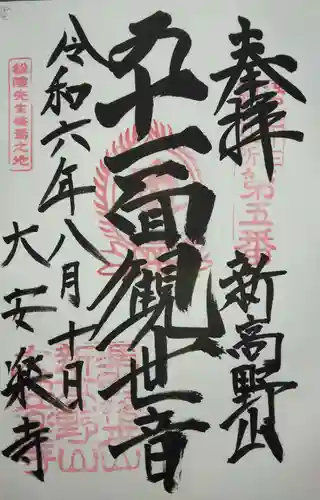 奉拝
新高野山
第五番
十一面観世音
令和六年八月十日
大安楽寺
松陰先生終焉之地